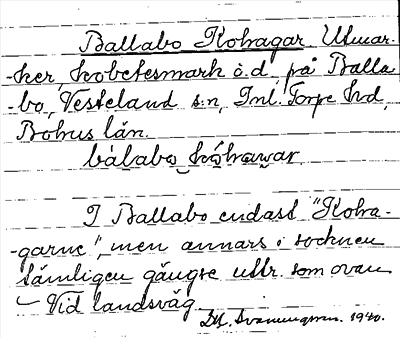 Ballabo Kohagar, Utmar-
-ker, kobetesmark o.d., på Balla
-bo, Vesteland s:n, Inl. Torpe hd,
Bohus län.
bálabo kóhawar
I Ballabo endast "Koha-
-garne", men annars i socknen
tämligen gängse uttr. som ovan
Vid landsväg
1940.